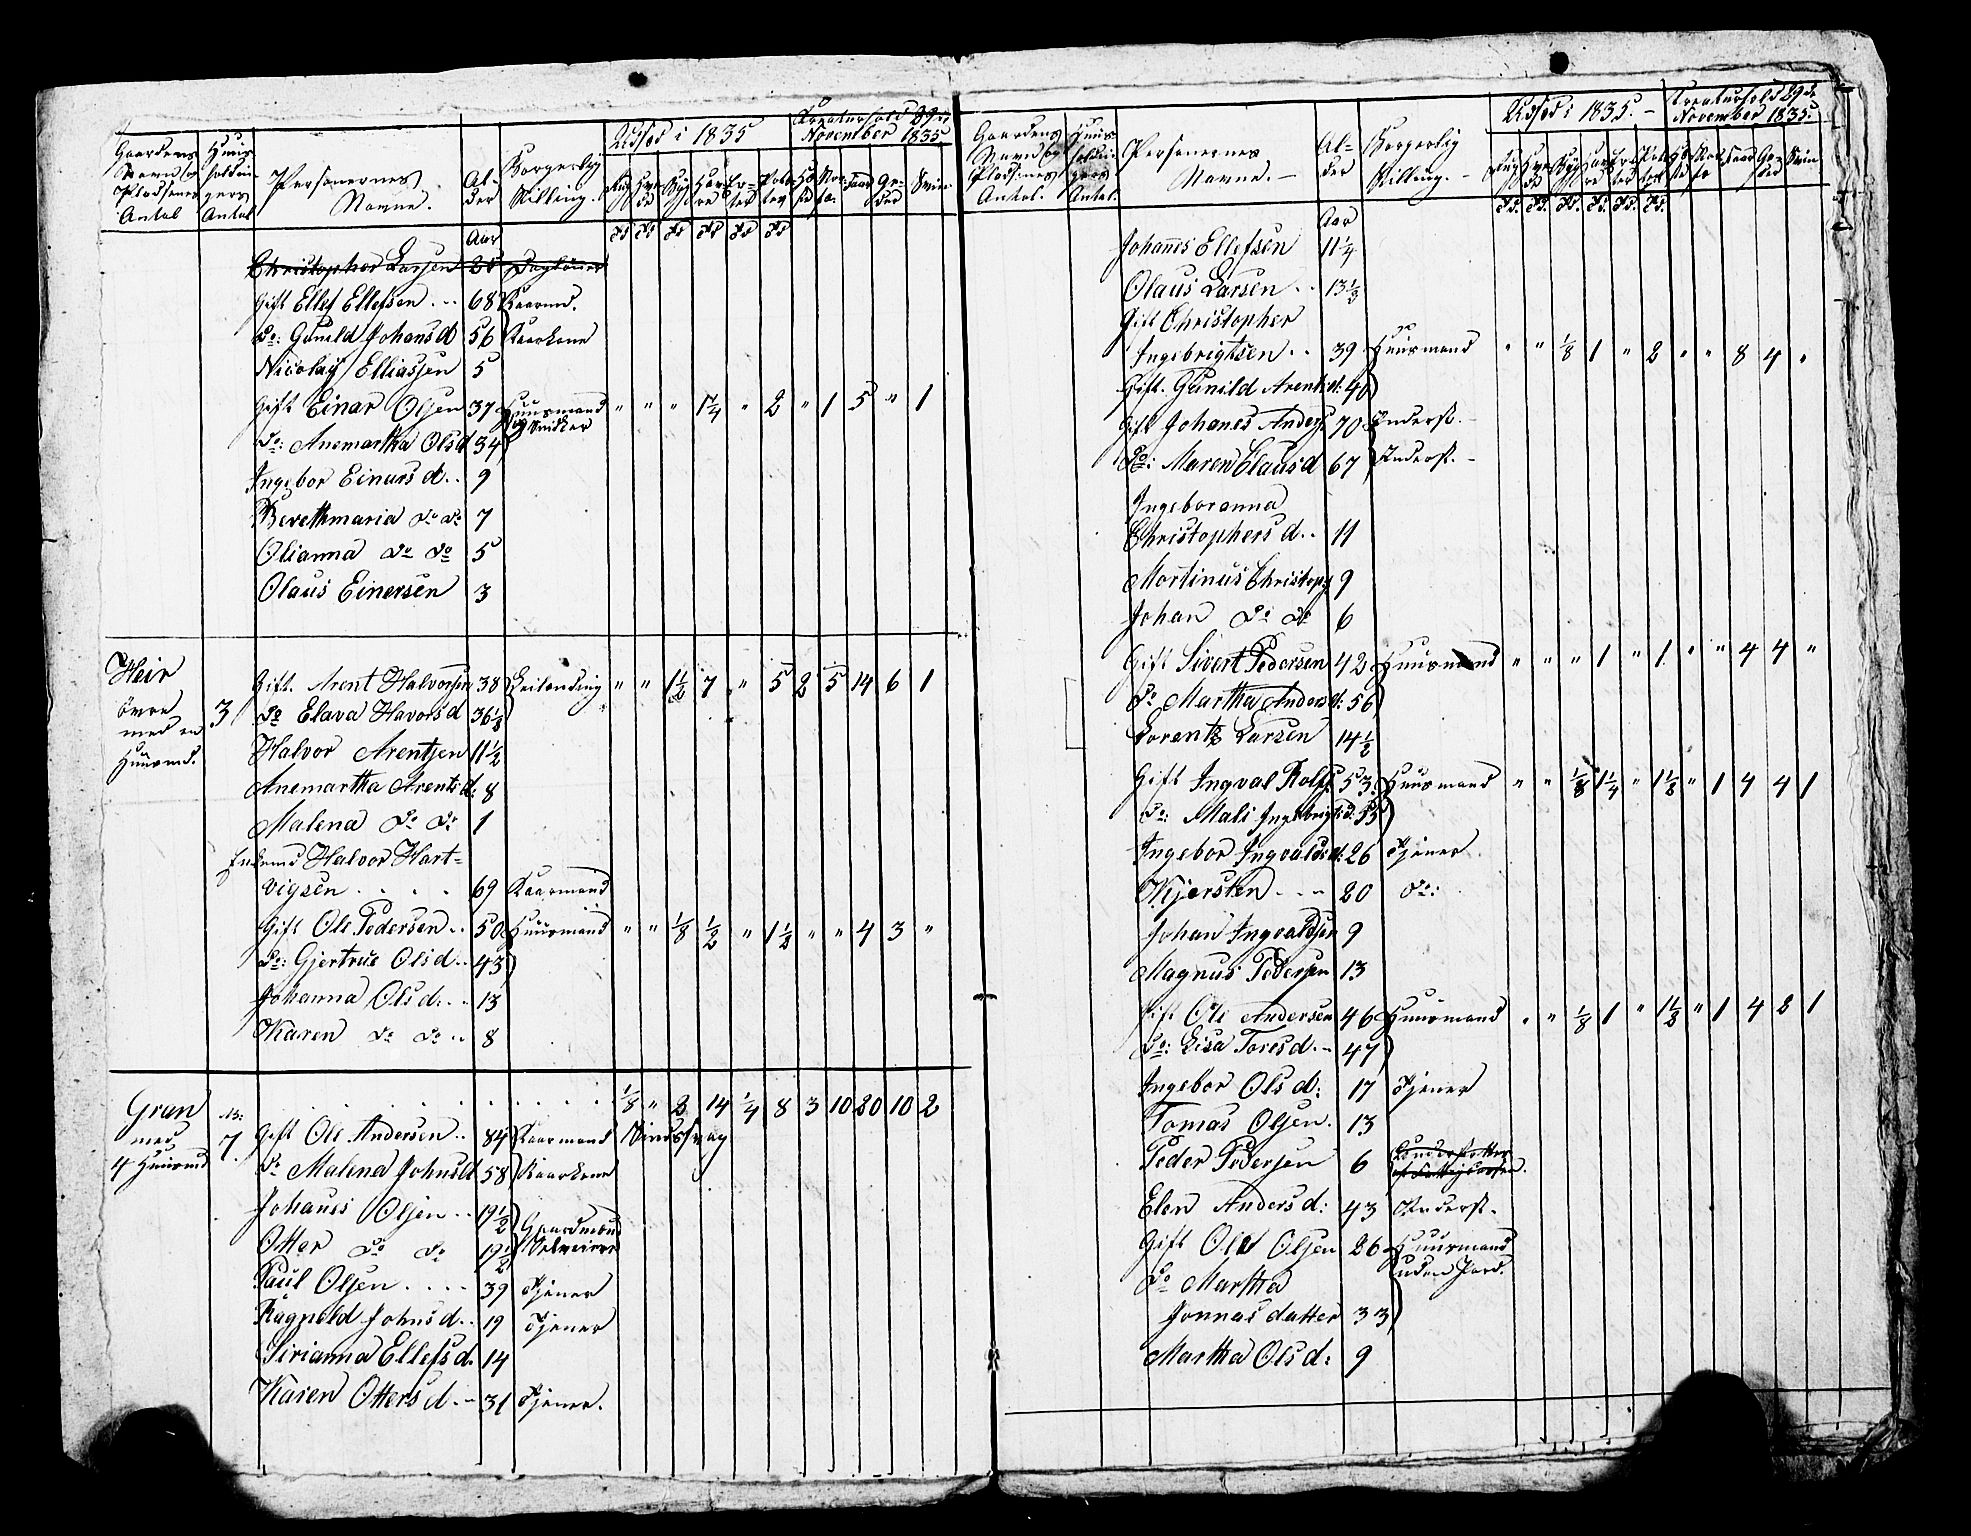 Gaardens Navn og Pladsenes Antal | Huusholdningers Antal | Personernes Navne. | Alder | Borgerlig Stilling. | Udsæd i 1835 | Kreaturhold 29de November 1835
Rug | Hvede | Byg | Havre | Erter | Poteter | Heste | Kor | Faar | Geder | Sviin
Aar | Td | Td | Td | Td | Td | Td
Christopher Larsen 25
Gift Ellef Ellefsen 68 Kaarmd.
Do: Gunild Johansd 56 Kaarkone
Nicolay Elliassen 5
Gift Einar Olsen 37 Huusmand og Snidker " " " 1¼ " 2 " 1 5 " 1
Do: Anemartha Olsd 34
Ingebor Einarsd. 9
Berethmaria do do 7
Olianna do do 5
Olaus Einersen 3
Heir övre med en Huusmd. 3
Gift. Arent Halvorsen 38 Leilending " " 1½ 7 " 5 2 5 14 6 1
Do Elava Havorsd 36½
Halvor Arentsen 11½
Anemartha Arentsd: 8
Malena do do 1
Enkemd Halvor Hart-
vigsen 69 Kaarmand
Gift Ole Pedersen 50 Huusmand " " ⅛ ½ " 1½ " " 4 3 "
Do: Gjertrue Olsd 43
Johanna Olsd: 13
Karen do do 8
Gran med 4 Huusmd 7. ⅛ " 2 14 ¼ 8 3 10 20 10 2
Gift Ole Andersen 84 Kaarmand
Do Malena Johnsd 58 Kaarkone
Johanes Olsen 19½
Otter do do 19½ Gaardmænd
Paul Olsen 39 Tjener
Ragnild Johnsd. 19 Tjener
Sirianna Ellefsd. 14
Karen Ottersd. 31 Tjener.
Gaardens Navn og Pladsenes Antal. | Huusholdningers Antal. | Personernes Navne. | Alder | Borgerlig Stilling. | Udsæd i 1835. | Kreaturhold 29de November 1835.
Rug | Hvede | Byg | Havre | Erter | Poteter | Heste | Kor | Faar | Geder | Sviin
Aar | Td. | Td. | Td. | Td. | Td. | Td.
Johanes Ellefsen 11¼
Olaus Larsen 13⅓
Gift Christopher
Ingebrigtsen 39 Huusmand " " ⅛ 1 " 2 " " 8 4 "
Gift. Gunild Arentsd: 40
Gift Johanes Anders 70 Inderst.
Do: Maren Clausd 67 Inderst.
Ingeboranna
Christophersd. 11
Mortinus Christoph 9
Johan do do 6
Gift Sivert Pedersen 42 Huusmand " " " 1 " 1. " " 4 4 "
Do Martha Andersd: 56
Lorentz Larsen 14½
Gift Ingval Rolfs. 53 Huusmand " " ⅛ 1¼ " 1½ " 1 4 4 1
Do: Mali Ingebrigtsd: 55
Ingebor Ingvaldsd: 26 Tjener
Kjersten 20 do:
Johan Ingvaldsen 9
Magnus Pedersen 13
Gift Ole Andersen 46 Huusmand " " ⅛ 1 " 1½ " 1 4 2 1
Do: Lisa Toresd. 47
Ingebor Olsd: 17 Tjener
Tomas Olsen. 13
Peder Pedersen 6
Elen Andersd: 43 Inderst.
Gift Ole Olsen 26 Huusmand uden Jord.
Do Martha
Jonnasdatter 33
Martha Olsd: 9